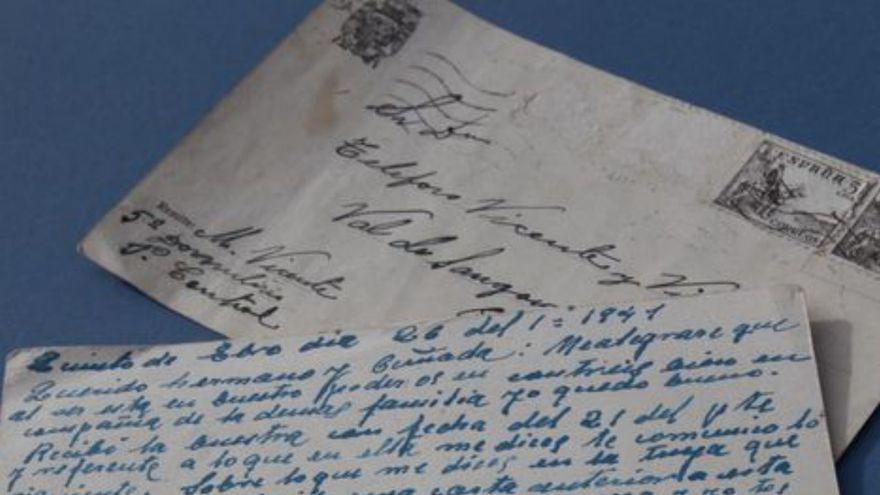 ESPAÑA 5
Sr. Dn.
Telesforo Vicente y
Val de San
M. Vicente
5ª
P. Central
Quinto de Ebro dia 26 del 1º 1941
Querido hermano y Cuñada: Mealegrare que
al ser esta en buestro poder os en contreis bien en
compañia de la demas familia yo quedo bueno.
Recibó la buestra con fecha del 21 del pte
y referente a loque en ella me dices te comunico lo
siguiente. Sobre loque me dices en la tuya que
una carta anterior a esta